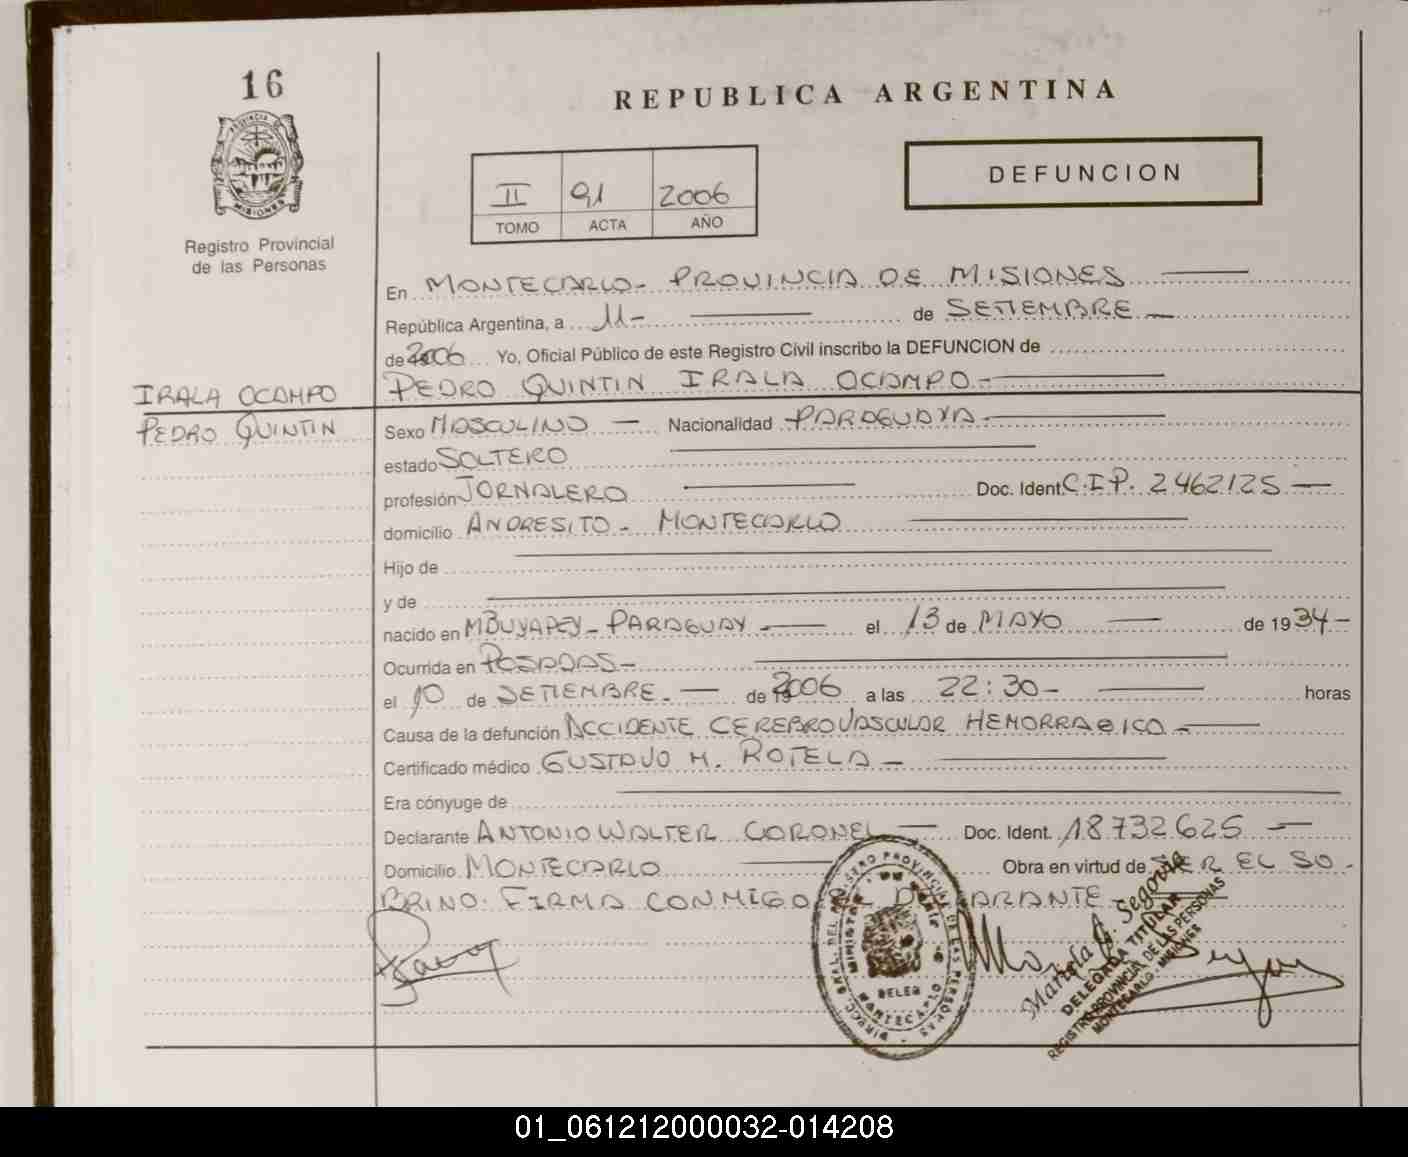 16
REPUBLICA ARGENTINA
PROVINCIA DE
MISIONES
Registro Provincial
de las Personas
II 91 2006
TOMO ACTA AÑO
DEFUNCION
En MONTECARLO - PROVINCIA DE MISIONES
República Argentina, a 11- de SETIEMBRE
de 2006 Yo, Oficial Público de este Registro Civil inscribo la DEFUNCION de
PEDRO QUINTIN IRALA OCAMPO -
IRALA OCAMPO
PEDRO QUINTIN
Sexo MASCULINO - Nacionalidad PARAGUAYA -
estado SOLTERO
profesión JORNALERO Doc. Ident. C.I.P. 2462125 -
domicilio ANDRESITO - MONTECARLO
Hijo de
y de
nacido en MBUYAPEY - PARAGUAY - el 13 de MAYO de 1934 -
Ocurrida en POSADAS -
el 10 de SETIEMBRE - de 2006 a las 22:30 - horas
Causa de la defunción ACCIDENTE CEREBROVASCULAR HEMORRAGICO -
Certificado médico GUSTAVO M. ROTELA -
Era cónyuge de
Declarante ANTONIO WALTER CORONEL - Doc. Ident. 18.732.625 -
Domicilio MONTECARLO Obra en virtud de SER EL SO-
BRINO. FIRMA CONMIGO EL DECLARANTE -
DIRECC. GRAL. DEL REGISTRO PROVINCIAL DE LAS PERSONAS
DELEG
MONTECARLO
Mariela A. Segovia
DELEGADA TITULAR
REGISTRO PROVINCIAL DE LAS PERSONAS
MONTECARLO - MISIONES
01_061212000032-014208